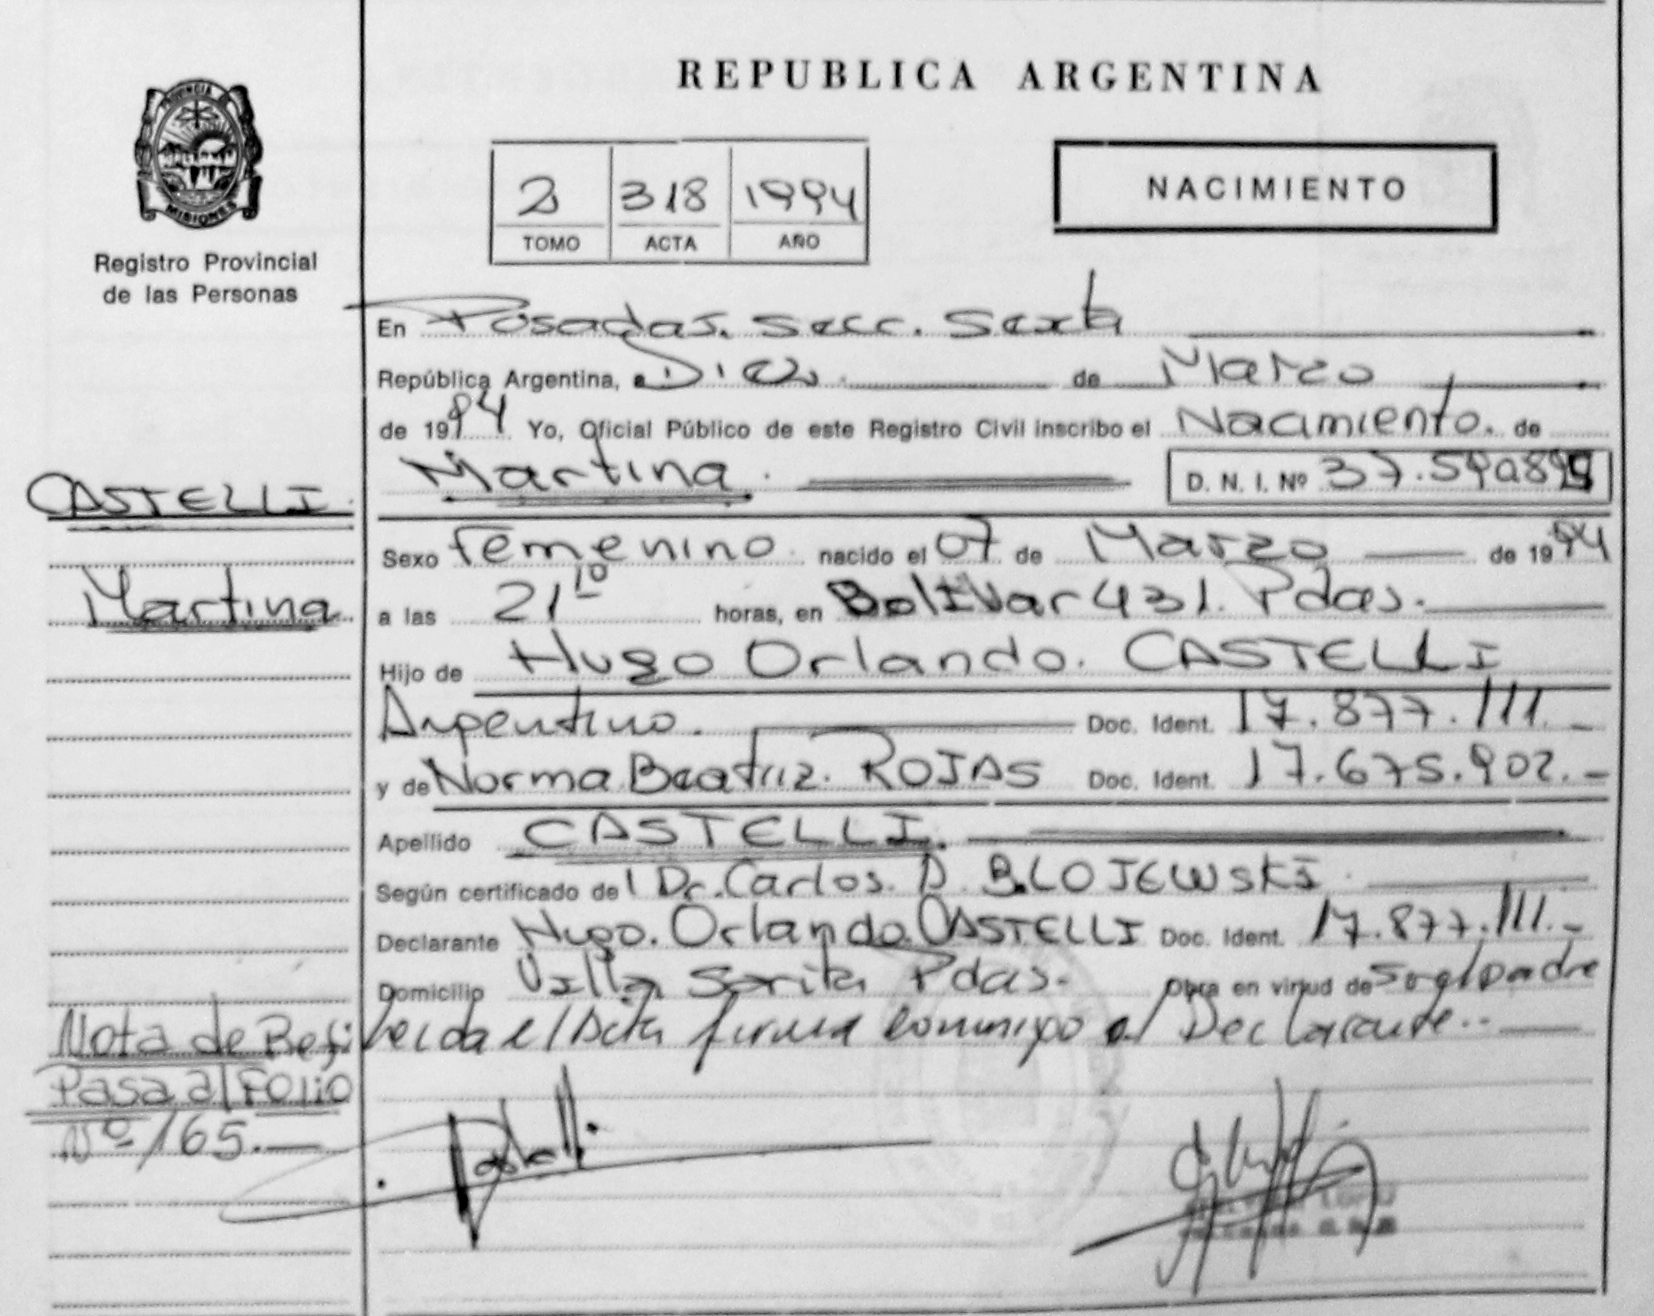 REPUBLICA ARGENTINA
PROVINCIA DE
MISIONES
Registro Provincial
de las Personas
2 318 1994
TOMO ACTA AÑO
NACIMIENTO
En Posadas. Secc. Sexta
República Argentina, a Diez de Marzo
de 1994 Yo, Oficial Público de este Registro Civil inscribo el Nacimiento. de
Martina. D. N. I. Nº
CASTELLI
Martina
Sexo femenino. nacido el 07 de Marzo de 1994
a las 21 10 horas, en Bolivar 431. Pdas.
Hijo de Hugo Orlando. CASTELLI
Argentino. Doc. Ident. 17.877.111.-
y de Norma Beatriz. ROJAS Doc. Ident. 17.675.902.-
Apellido CASTELLI.
Según certificado del Dr. Carlos. D. BLOJEWSKI.
Declarante Hugo. Orlando. CASTELLI Doc. Ident. 17.877.111.-
Domicilio Villa Sarita Pdas. Obra en virtud de ser el padre
Leida el Acta firma conmigo el Declarante..
Nota de
Pasa al Folio
Nº 165.-